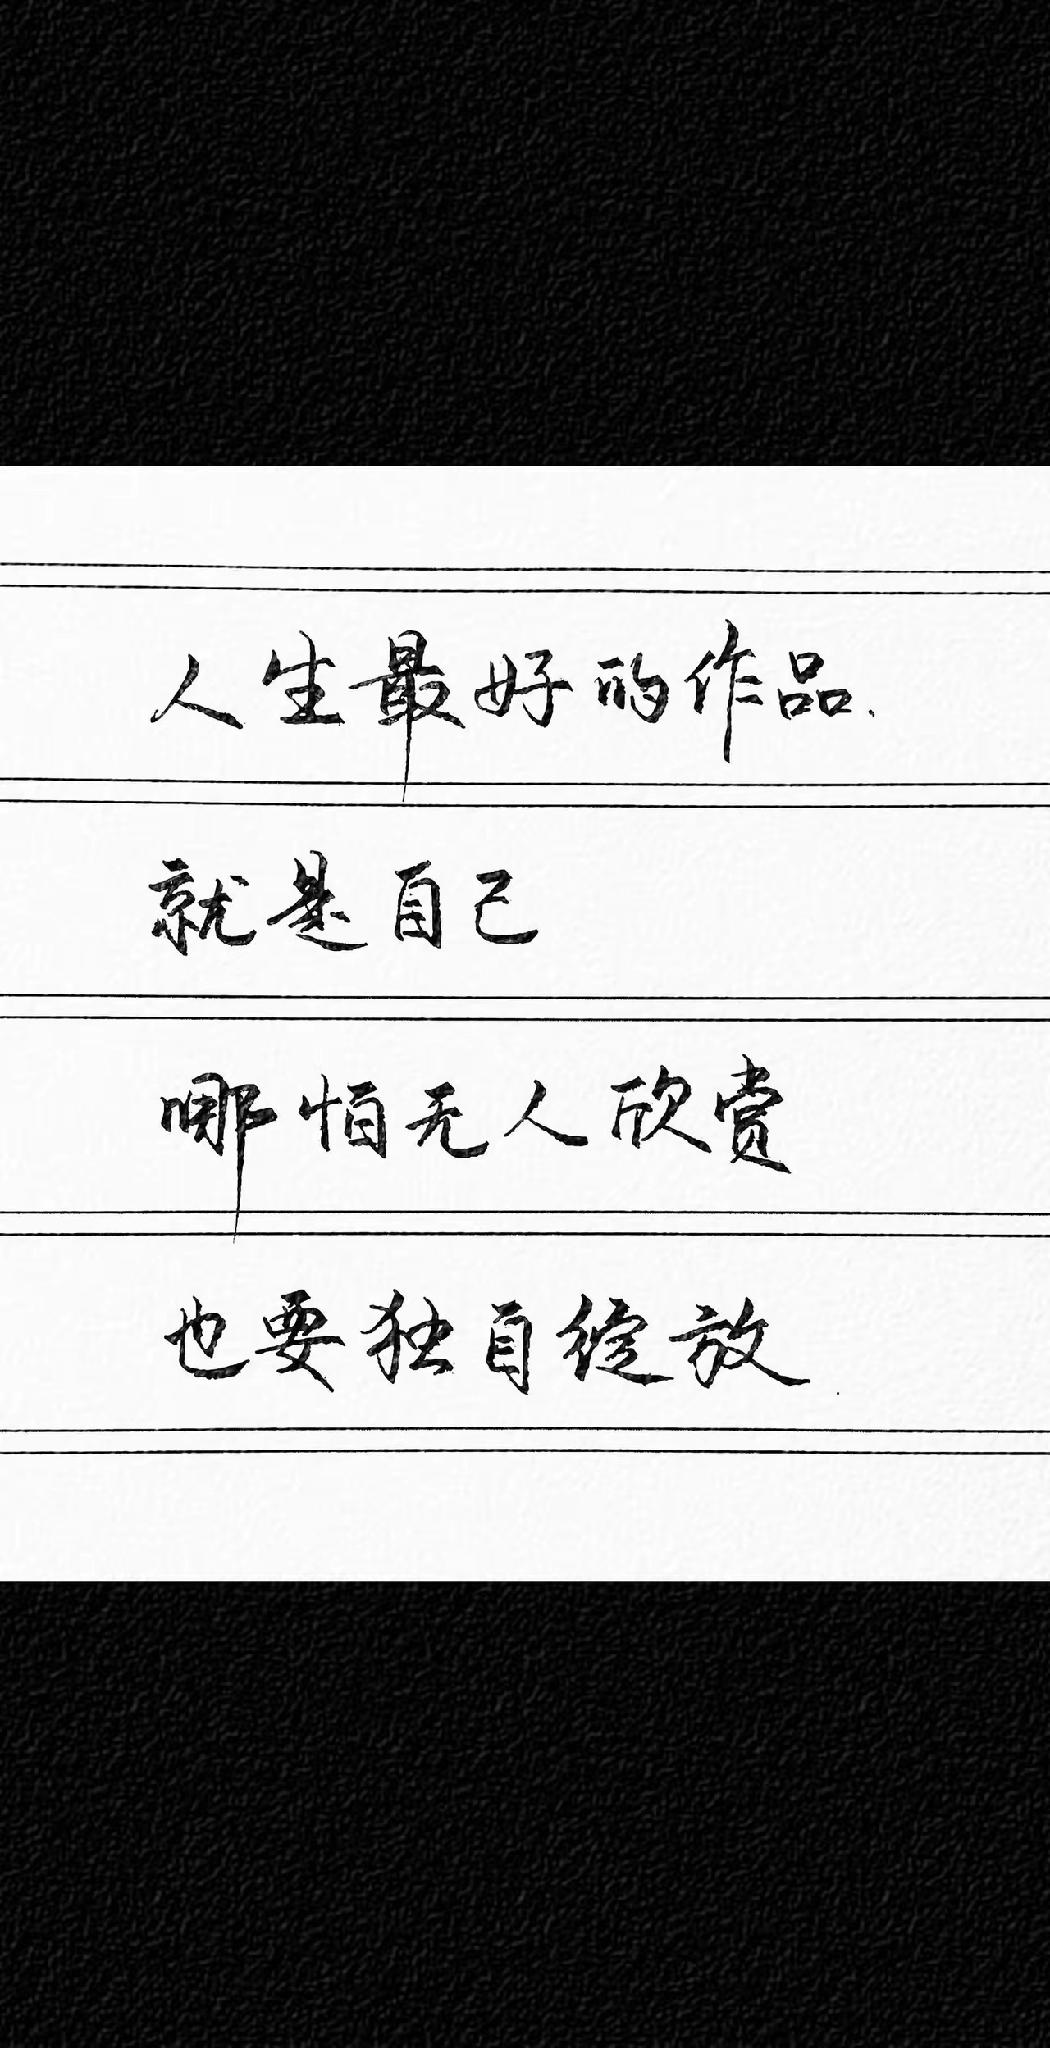 人生最好的作品.
就是自己
哪怕无人欣赏
也要独自绽放.